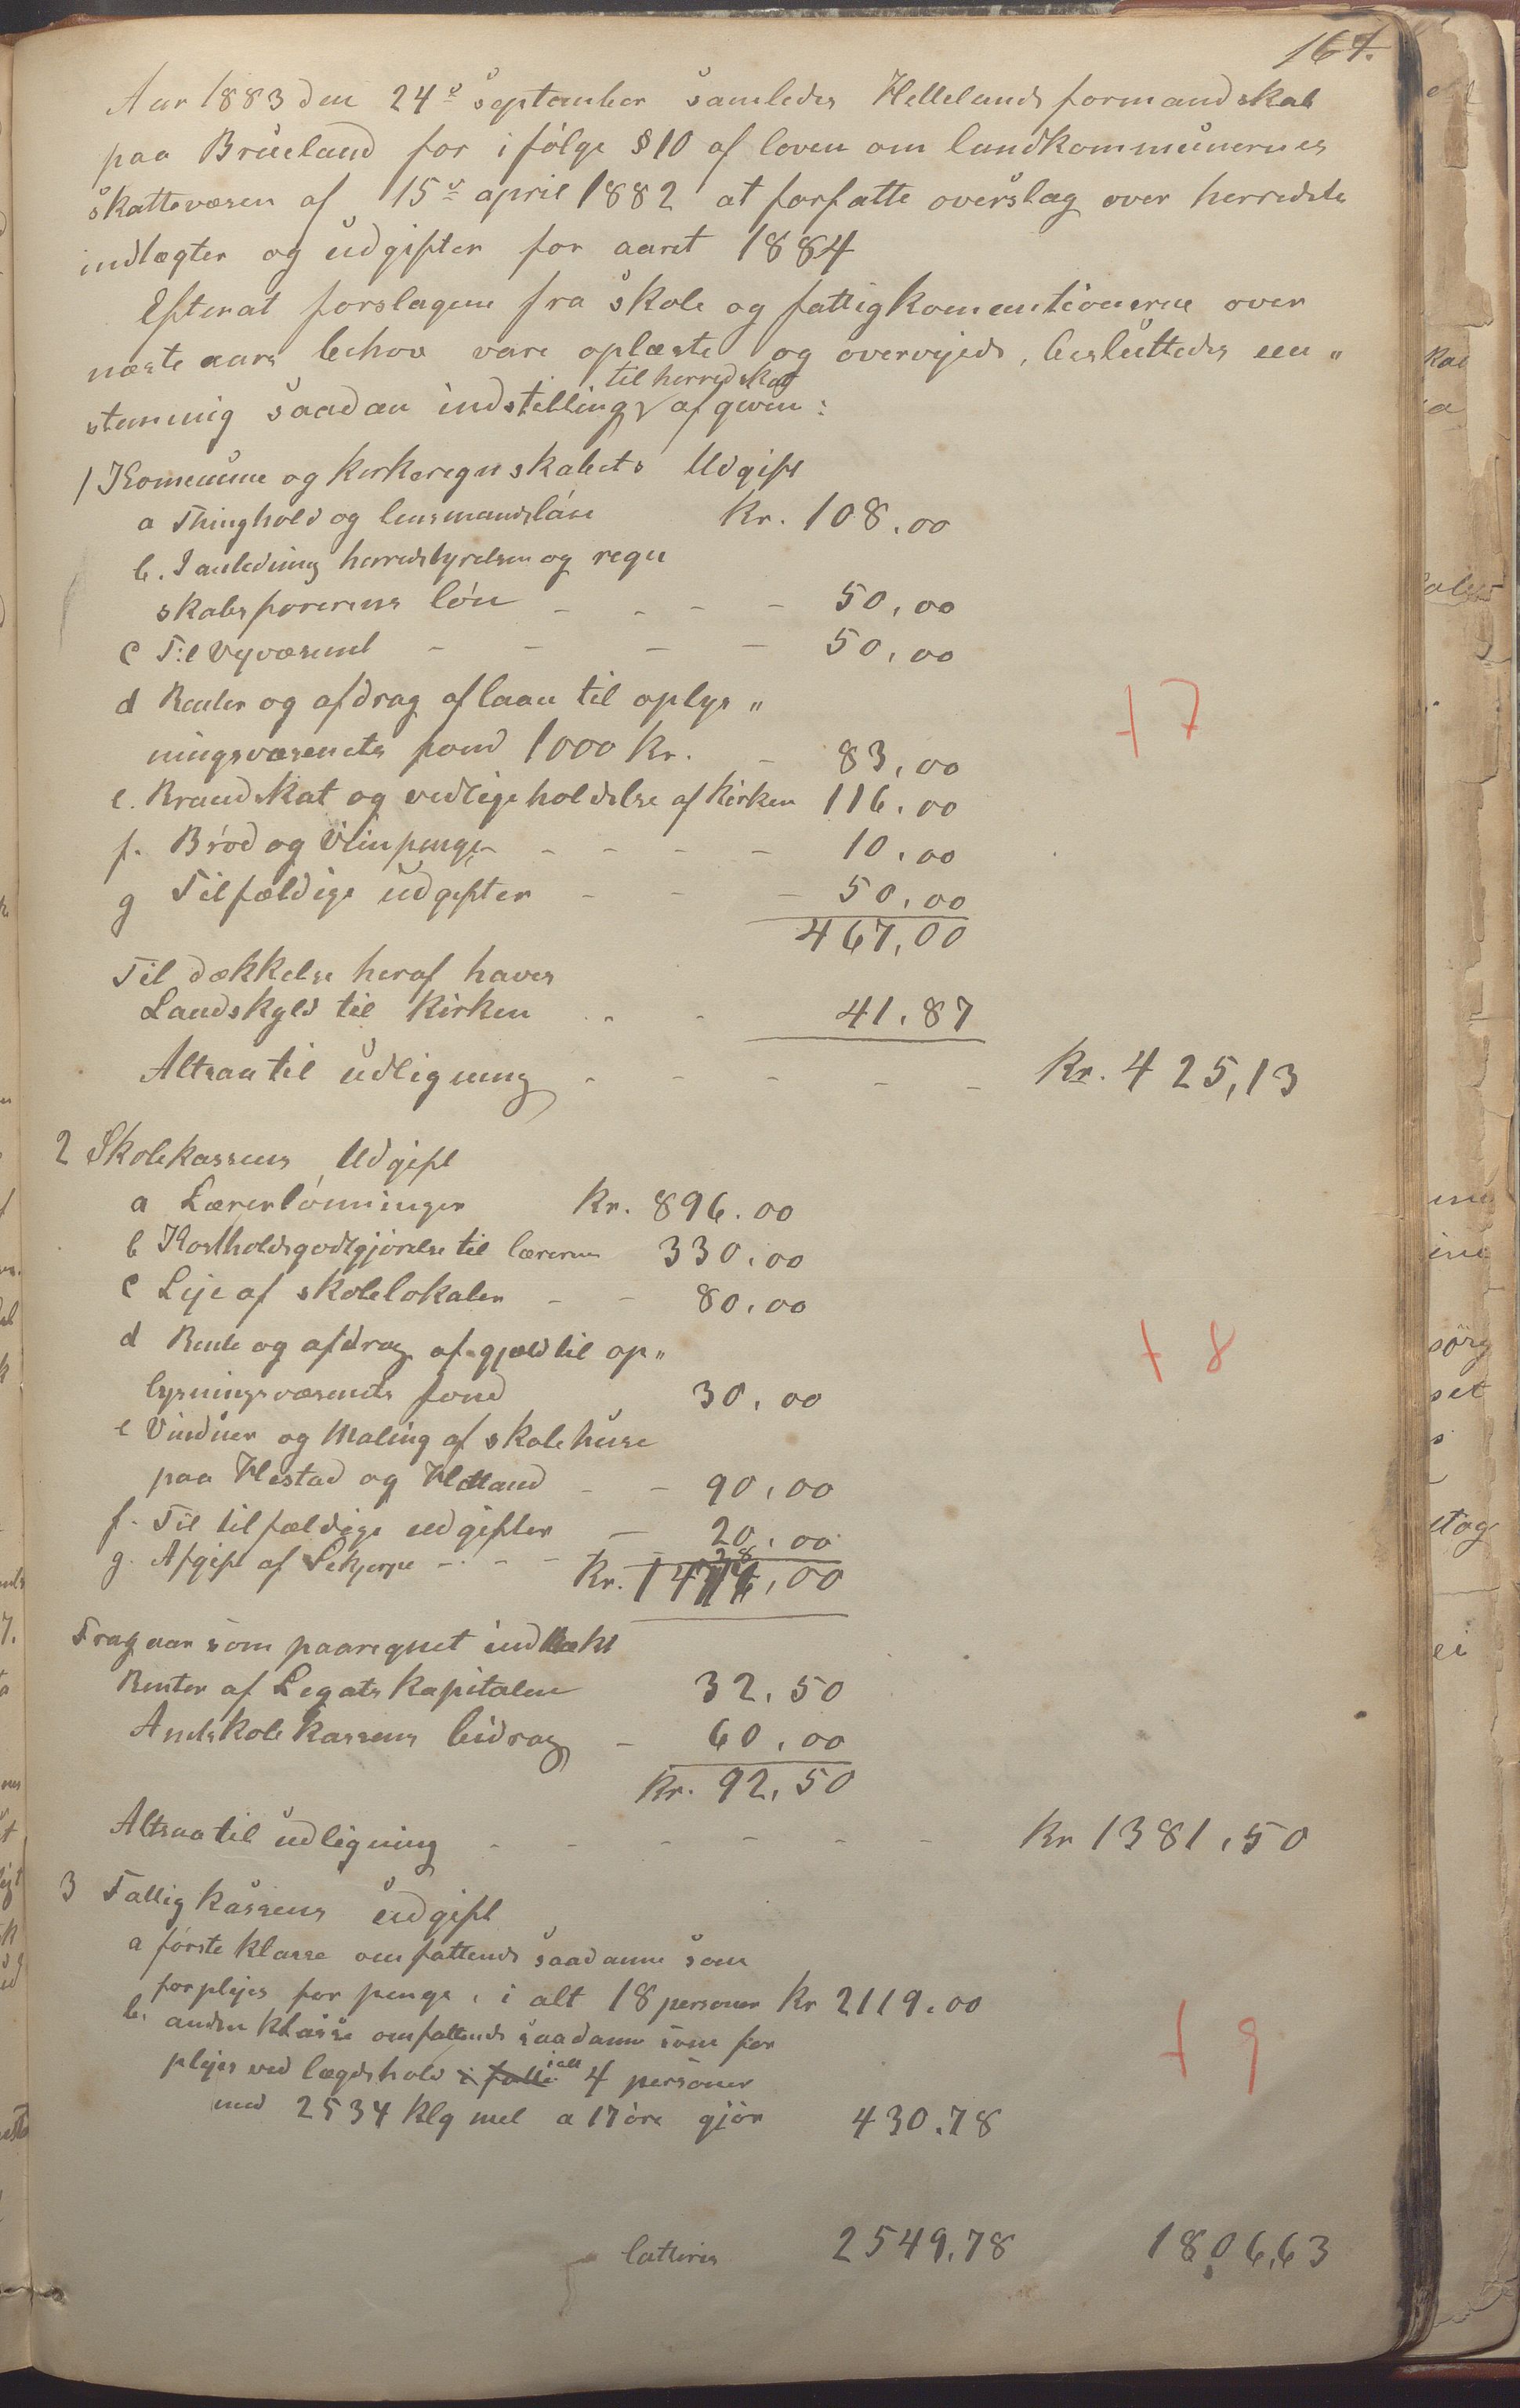 167.
Aar 1883 den 24de September samledes Hellelands formandskab
paa Brueland for i følge § 10 af loven om landkommunernes
skattevæsen af 15de april 1882 at forfatte overslag over herredets
indtægter og udgifter for aaret 1884
Efterat forslagene fra skole og fattigkommentionerne over
næste aars behov vare oplæste og overvejede, besluttedes een"
stemmig saadan indstilling til herredskat afgiven:
1 Kommune og kirkeregnskabets Udgift
a Thinghold og lensmandsløn Kr. 108.00
b. I anledning herredstyrelsen og regn
skabsførerens løn - - - - 50.00
c Til Vejvæsenet - - - - 50.00
d Renter og afdrag af laan til oplys"
ningsvæsenets fond 1000 Kr. - 83,00
+ 7
e. Brandskat og vedligeholdelse af Kirken 116.00
f. Brød og Viinpenge - - - - 10.00
g Tilfældige udgifter - - - 50,00
467,00
Til dækkelse heraf haves
Landskyld til Kirken - - 41.87
Altsaa til udligning - - - - - Kr. 425,13
2 Skolekassens Udgift
a Lærerlønninger Kr. 896.00
b Kostholdsgodtgjørelse til lærerne 330.00
c Leje af skolelokaler - - 80.00
d Rente og afdrag af gjæld til op"
lysningsvæsenets fond 30.00
+ 8
e Vinduer og Maling af skolehuse
paa Hestad og Hetland - - 90,00
f. Til tilfældige udgifter - 20,00
g. Afgift af - - - - 28
Kr. 1474,00
Fragaar som paaregnet indtækt
Renter af Legatskapitalen 32,50
Amtskolekassens bidrag - 60.00
Kr. 92,50
Altsaa til udligning - - - - - - Kr 1381,50
3 Fattigkassens udgift
a første klasse omfattende saadanne som
forplejes for penge, i alt 18 personer Kr 2119.00
b. anden klasse omfattende saadanne som for
plejes ved lægdshold i alt 4 personer
+ 9
med 2534 Klg mel a 17 øre gjør 430.78
latteris 2549.78 1806,63